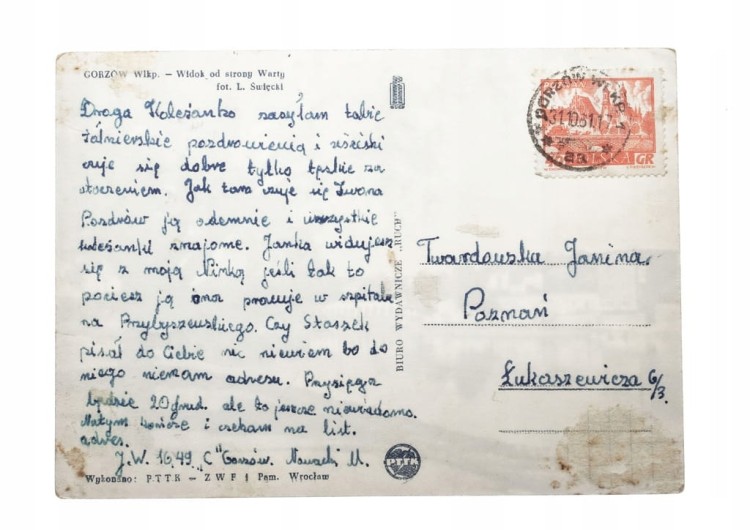 GORZÓW Wlkp. – Widok od strony Warty
fot. L. Sulęcki
Draga Koleżanko zasyłam tobie
żołnierskie pozdrowienia i uściski
czuje się dobrze tylko tęsknie za
otoczeniem. Jak tam czuje się Iwona
Pozdrów ją odemnie i wszystkie
koleżanki znajome. Janka widujesz
się z moją Ninką jeśli tak to
pociesz ją ona pracuje w szpitalu
na Przybyszewskiego. Czy Staszek
pisał do Ciebie nic niewiem bo do
niego niemam adresu. Przysięga
będzie 20 grud. ale to jeszcze niewiadomo.
Natym kończe i czekam na list.
adres.
J.W. 1649 "C" Gorzów. Nowacki M.
Wykonano: P.T.T.K – Z W F 1 Pam. Wrocław
BIURO WYDAWNICZE „RUCH"
GORZÓW WLKP. 1
31.10.61.17
POLSKA GR
Twardowska Janina
Poznań
Łukaszewicza 6/3.